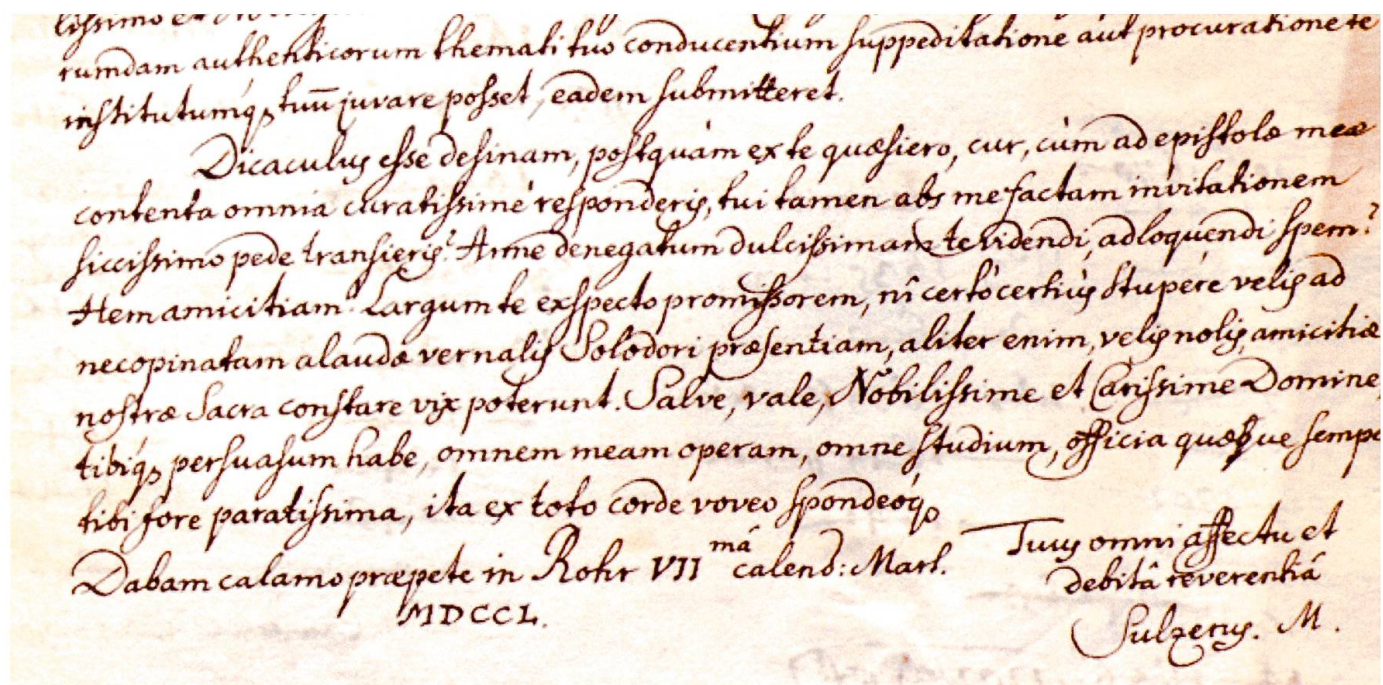 lissimo et
rumdam authenticorum themati tuo conducentium suppeditatione aut procuratione te
institutumq, tuū juvare posset, eadem submitteret.
Dicaculus esse desinam, postquàm ex te quæsiero, cur, cùm ad epistolæ meæ
contenta omnia curatissimè responderis, tui tamen abs me factam invitationem
siccissimo pede transieris? Anne denegatum dulcissimam te videndi, adloquendi spem?
Hem amicitiam! Largum te exspecto promissorem, nî certò certiùs stupére velis ad
necopinatam alaudæ vernalis Solodori præsentiam, aliter enim, velis nolis, amicitiæ
nostræ Sacra constare vix poterunt. Salve, vale, Nobilissime et Carissime Domine,
tibíq, persuasum habe, omnem meam operam, omne studium, officia quæque sempe
tibi fore paratissima, ita ex toto corde voveo spondeóq,
Dabam calamo præpete in Rohr VII má calend: Mart.
MDCCL.
Tuus omni affectu et
debitâ reverentiâ
Sulzerus. M.